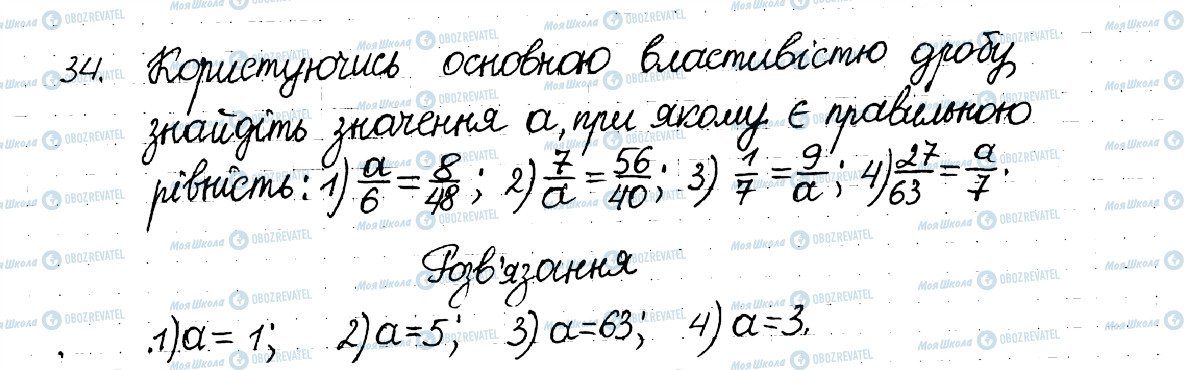 34. Користуючись основною властивістю дробу,
знайдіть значення а, при якому є правильною
рівність: 1) a/6 = 8/48; 2) 7/a = 56/40; 3) 1/7 = 9/a; 4) 27/63 = a/7.
Розв'язання
1) a = 1; 2) a = 5; 3) a = 63; 4) a = 3.
Моя Школа OBOZREVATEL